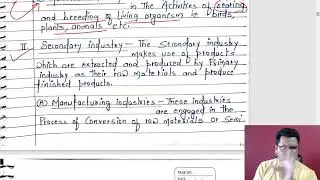 in The Activities of rearing
and breeding of living organism ie birds,
plants, animals etc.
II. Secondary industry - The Secondary industry
makes use of products
which are extracted and produced by Primary
industry as their raw materials and produce
finished products.
(A) Manufacturing industries - These industries
are engaged in the
Process of Conversion of raw materials or semi
PAGE NO.